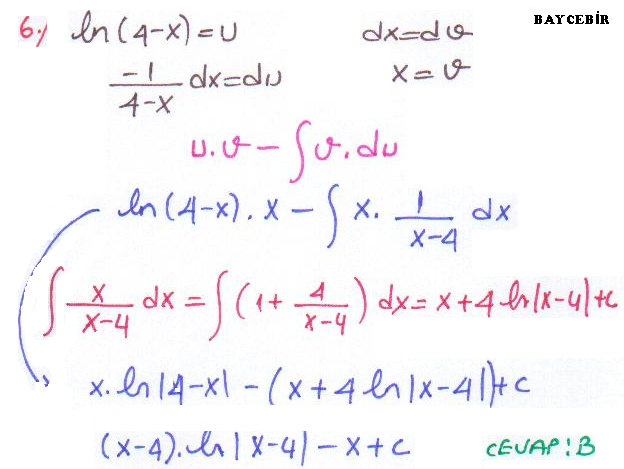 BAY CEBİR
6-) ln(4-x)=u dx=dv
-1/(4-x) dx=du x=v
u.v - ∫v.du
ln(4-x).x - ∫x. 1/(x-4) dx
∫ x/(x-4) dx = ∫(1+ 4/(x-4)) dx = x+4 ln|x-4|+c
x.ln|4-x| - (x+4 ln|x-4|)+c
(x-4).ln|x-4| - x+c CEVAP:B